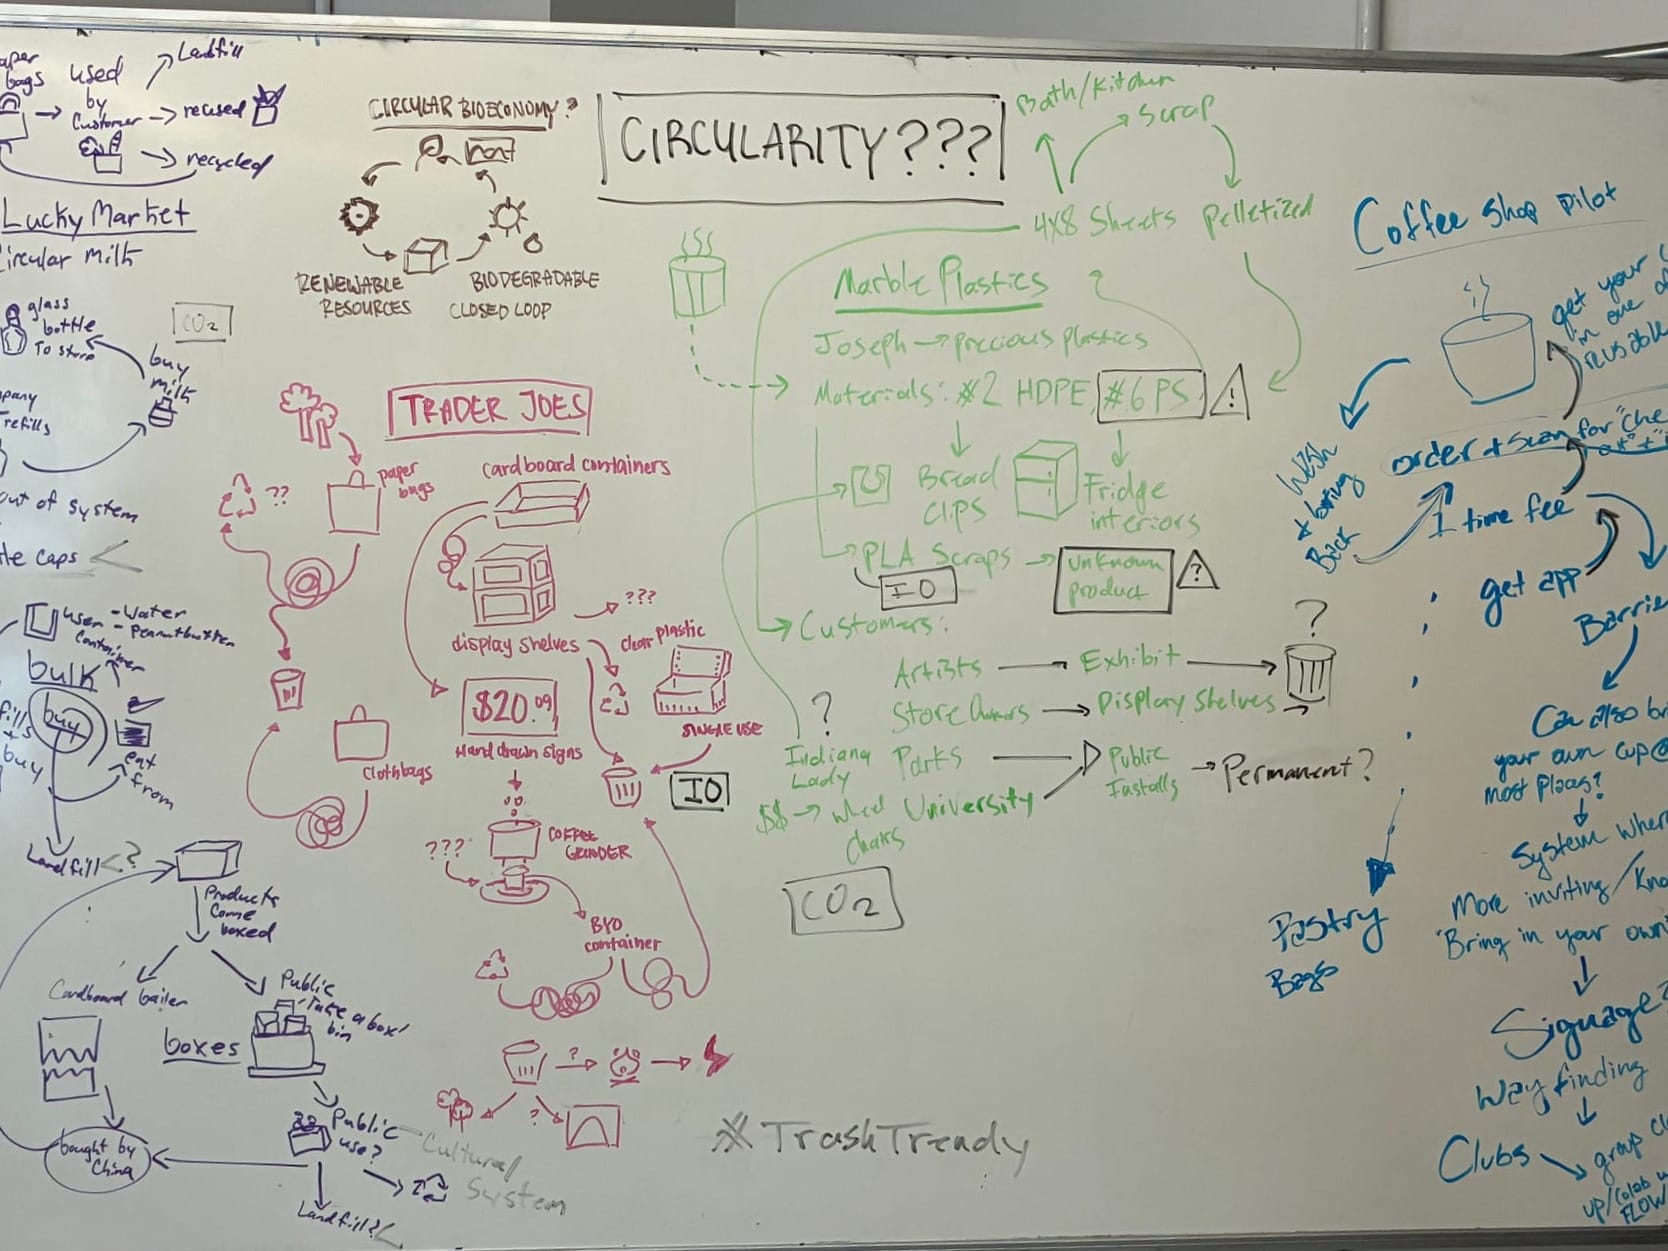 Landfill
bags
used
by
Customer
reused
recycled
Lucky Market
circular milk
glass
bottle
To store
buy
milk
refills
out of system
caps
CO2
user
container
- Water
- Peanutbutter
bulk
buy
buy
eat
from
Landfill ?
Products
Come
boxed
Cardboard bailer
Public
"Take a box"
bin
boxes
Public
use?
bought by
China
Landfill?
Cultural
System
CIRCULAR BIOECONOMY?
RENEWABLE
RESOURCES
BIODEGRADABLE
CLOSED LOOP
CIRCULARITY???
TRADER JOES
??
paper
bags
cardboard containers
display shelves
???
clear plastic
SINGLE USE
$20.09
Hand drawn signs
cloth bags
IO
COFFEE
GRINDER
???
BYO
container
?
?
#TrashTrendy
Bath/Kitchen
Scrap
4x8 Sheets
Pelletized
Marble Plastics
?
Joseph → precious plastics
Materials: #2 HDPE, #6 PS
!
Bread
clips
Fridge
interiors
PLA Scraps
IO
unknown
product
?
Customers:
Artists → Exhibit
?
Store Owners → Display Shelves
?
Indiana
Lady
Parks
Public
Installs
→ Permanent?
$$ → wheel
chairs
University
CO2
Coffee Shop Pilot
get your
in one of
reusable
order + scan for "che
out" +
Wash
+ bring
Back
1 time fee
get app
Barrie
Can also br
your own cup @
most places?
System wher
More inviting/Kno
"Bring in your own"
Signage?
Way finding
Clubs
group
up/Colab w
FLOW
Pastry
Bags